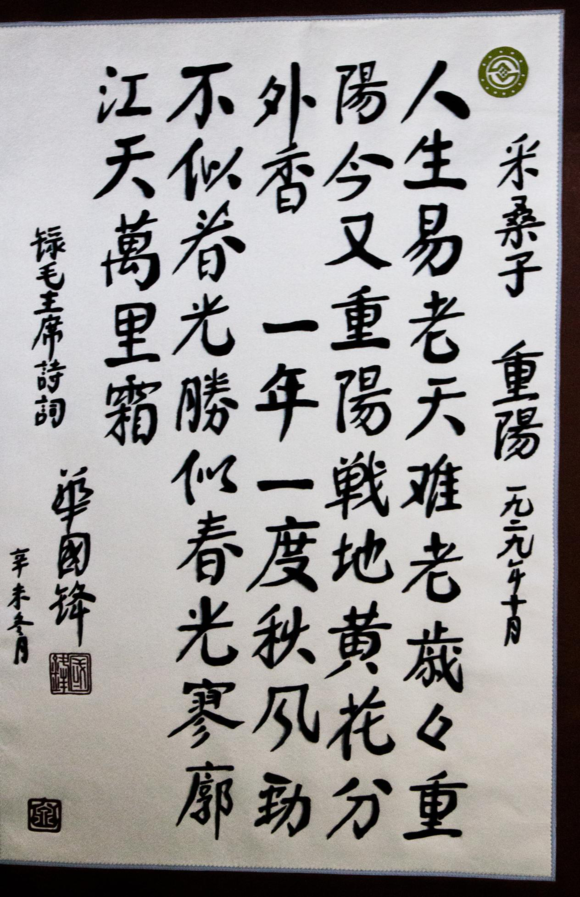 采桑子　重陽　一九二九年十月
人生易老天难老歲々重
陽今又重陽戦地黄花分
外香　一年一度秋风勁
不似春光勝似春光寥廓
江天萬里霜
錄毛主席詩詞
華國锋
辛未冬月